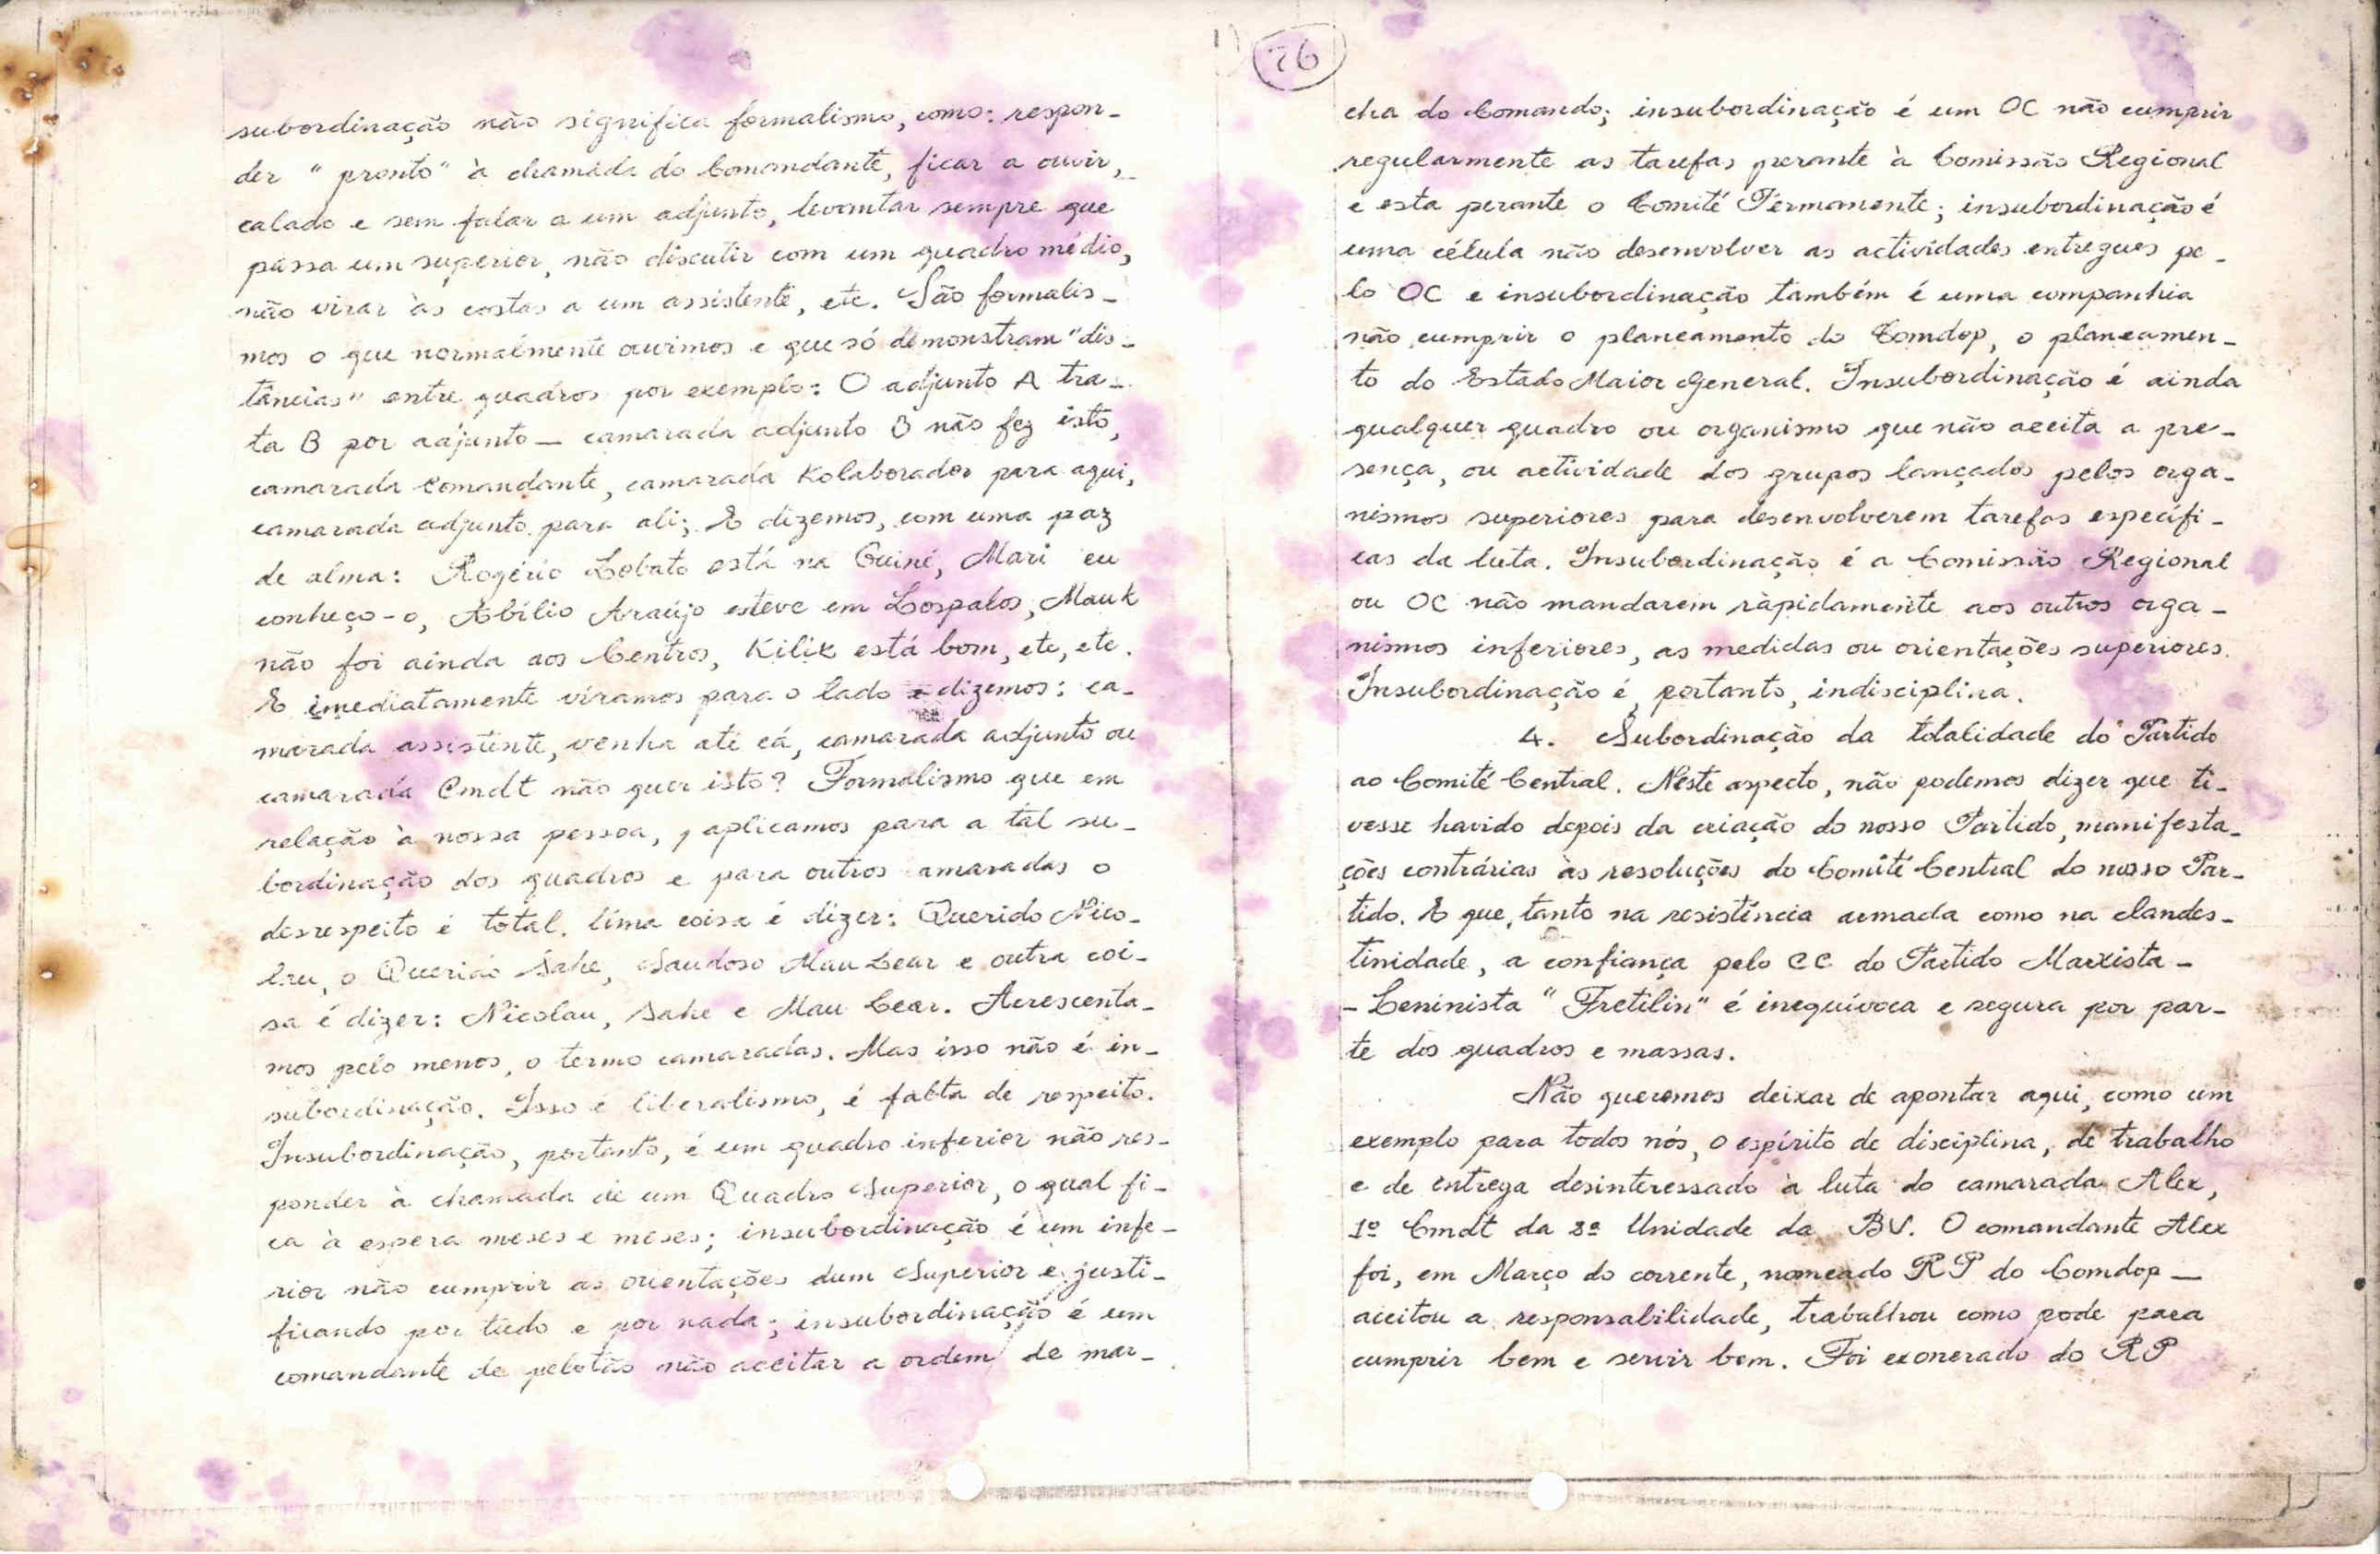 26
subordinação não significa formalismo, como: respon-
der "pronto" à chamada do Comandante, ficar a ouvir,
calado e sem falar a um adjunto, levantar sempre que
passa um superior, não discutir com um quadro médio,
não virar às costas a um assistente, etc. São formalis-
mos o que normalmente ouvimos e que só demonstram "dis-
tâncias" entre quadros por exemplo: O adjunto A tra-
ta B por adjunto — camarada adjunto B não fez isto,
camarada Comandante, camarada Kolaborador para aqui,
camarada adjunto para ali; E dizemos, com uma paz
de alma: Rogério Lobato está na Guiné, Mari eu
conheço-o, Abílio Araújo esteve em Lospalos, Mauk
não foi ainda aos Centros, Kilik está bom, etc, etc.
E imediatamente viramos para o lado e dizemos: ca-
marada assistente, venha até cá, camarada adjunto ou
camarada Cmdt não quer isto? Formalismo que em
relação à nossa pessoa, aplicamos para a tal su-
bordinação dos quadros e para outros amaradas o
desrespeito é total. Uma coisa é dizer: Querido Nico-
lau, o Querido Sahe, Saudoso Mau Lear e outra coi-
sa é dizer: Nicolau, Sahe e Mau Lear. Acrescenta-
mos pelo menos, o termo camaradas. Mas isso não é in-
subordinação. Isso é liberalismo, é falta de respeito.
Insubordinação, portanto, é um quadro inferior não res-
ponder à chamada de um Quadro Superior, o qual fi-
ca à espera meses e meses; insubordinação é um infe-
rior não cumprir as orientações dum Superior e justi-
ficando por tudo e por nada; insubordinação é um
comandante de pelotão não aceitar a ordem de mar-
cha do Comando; insubordinação é um OC não cumprir
regularmente as tarefas perante à Comissão Regional
e esta perante o Comité Permanente; insubordinação é
uma célula não desenvolver as actividades entregues pe-
lo OC e insubordinação também é uma companhia
não cumprir o planeamento do Comdop, o planeamen-
to do Estado Maior General. Insubordinação é ainda
qualquer quadro ou organismo que não aceita a pre-
sença, ou actividade dos grupos lançados pelos orga-
nismos superiores para desenvolverem tarefas específi-
cas da luta. Insubordinação é a Comissão Regional
ou OC não mandarem ràpidamente aos outros orga-
nismos inferiores, as medidas ou orientações superiores.
Insubordinação é, portanto, indisciplina.
4. Subordinação da totalidade do Partido
ao Comité Central. Néste aspecto, não podemos dizer que ti-
vesse havido depois da criação do nosso Partido, manifesta-
ções contrárias às resoluções do Comité Central do nosso Par-
tido. E que, tanto na resistência armada como na clandes-
tinidade, a confiança pelo CC do Partido Marxista-
-Leninista "Fretilin" é inequívoca e segura por par-
te dos quadros e massas.
Não queremos deixar de apontar aqui, como um
exemplo para todos nós, o espírito de disciplina, de trabalho
e de entrega desinteressado à luta do camarada Alex,
1º Cmdt da 2ª Unidade da BV. O comandante Alex
foi, em Março do corrente, nomeado RP do Comdop —
aceitou a responsabilidade, trabalhou como pode para
cumprir bem e servir bem. Foi exonerado do RP